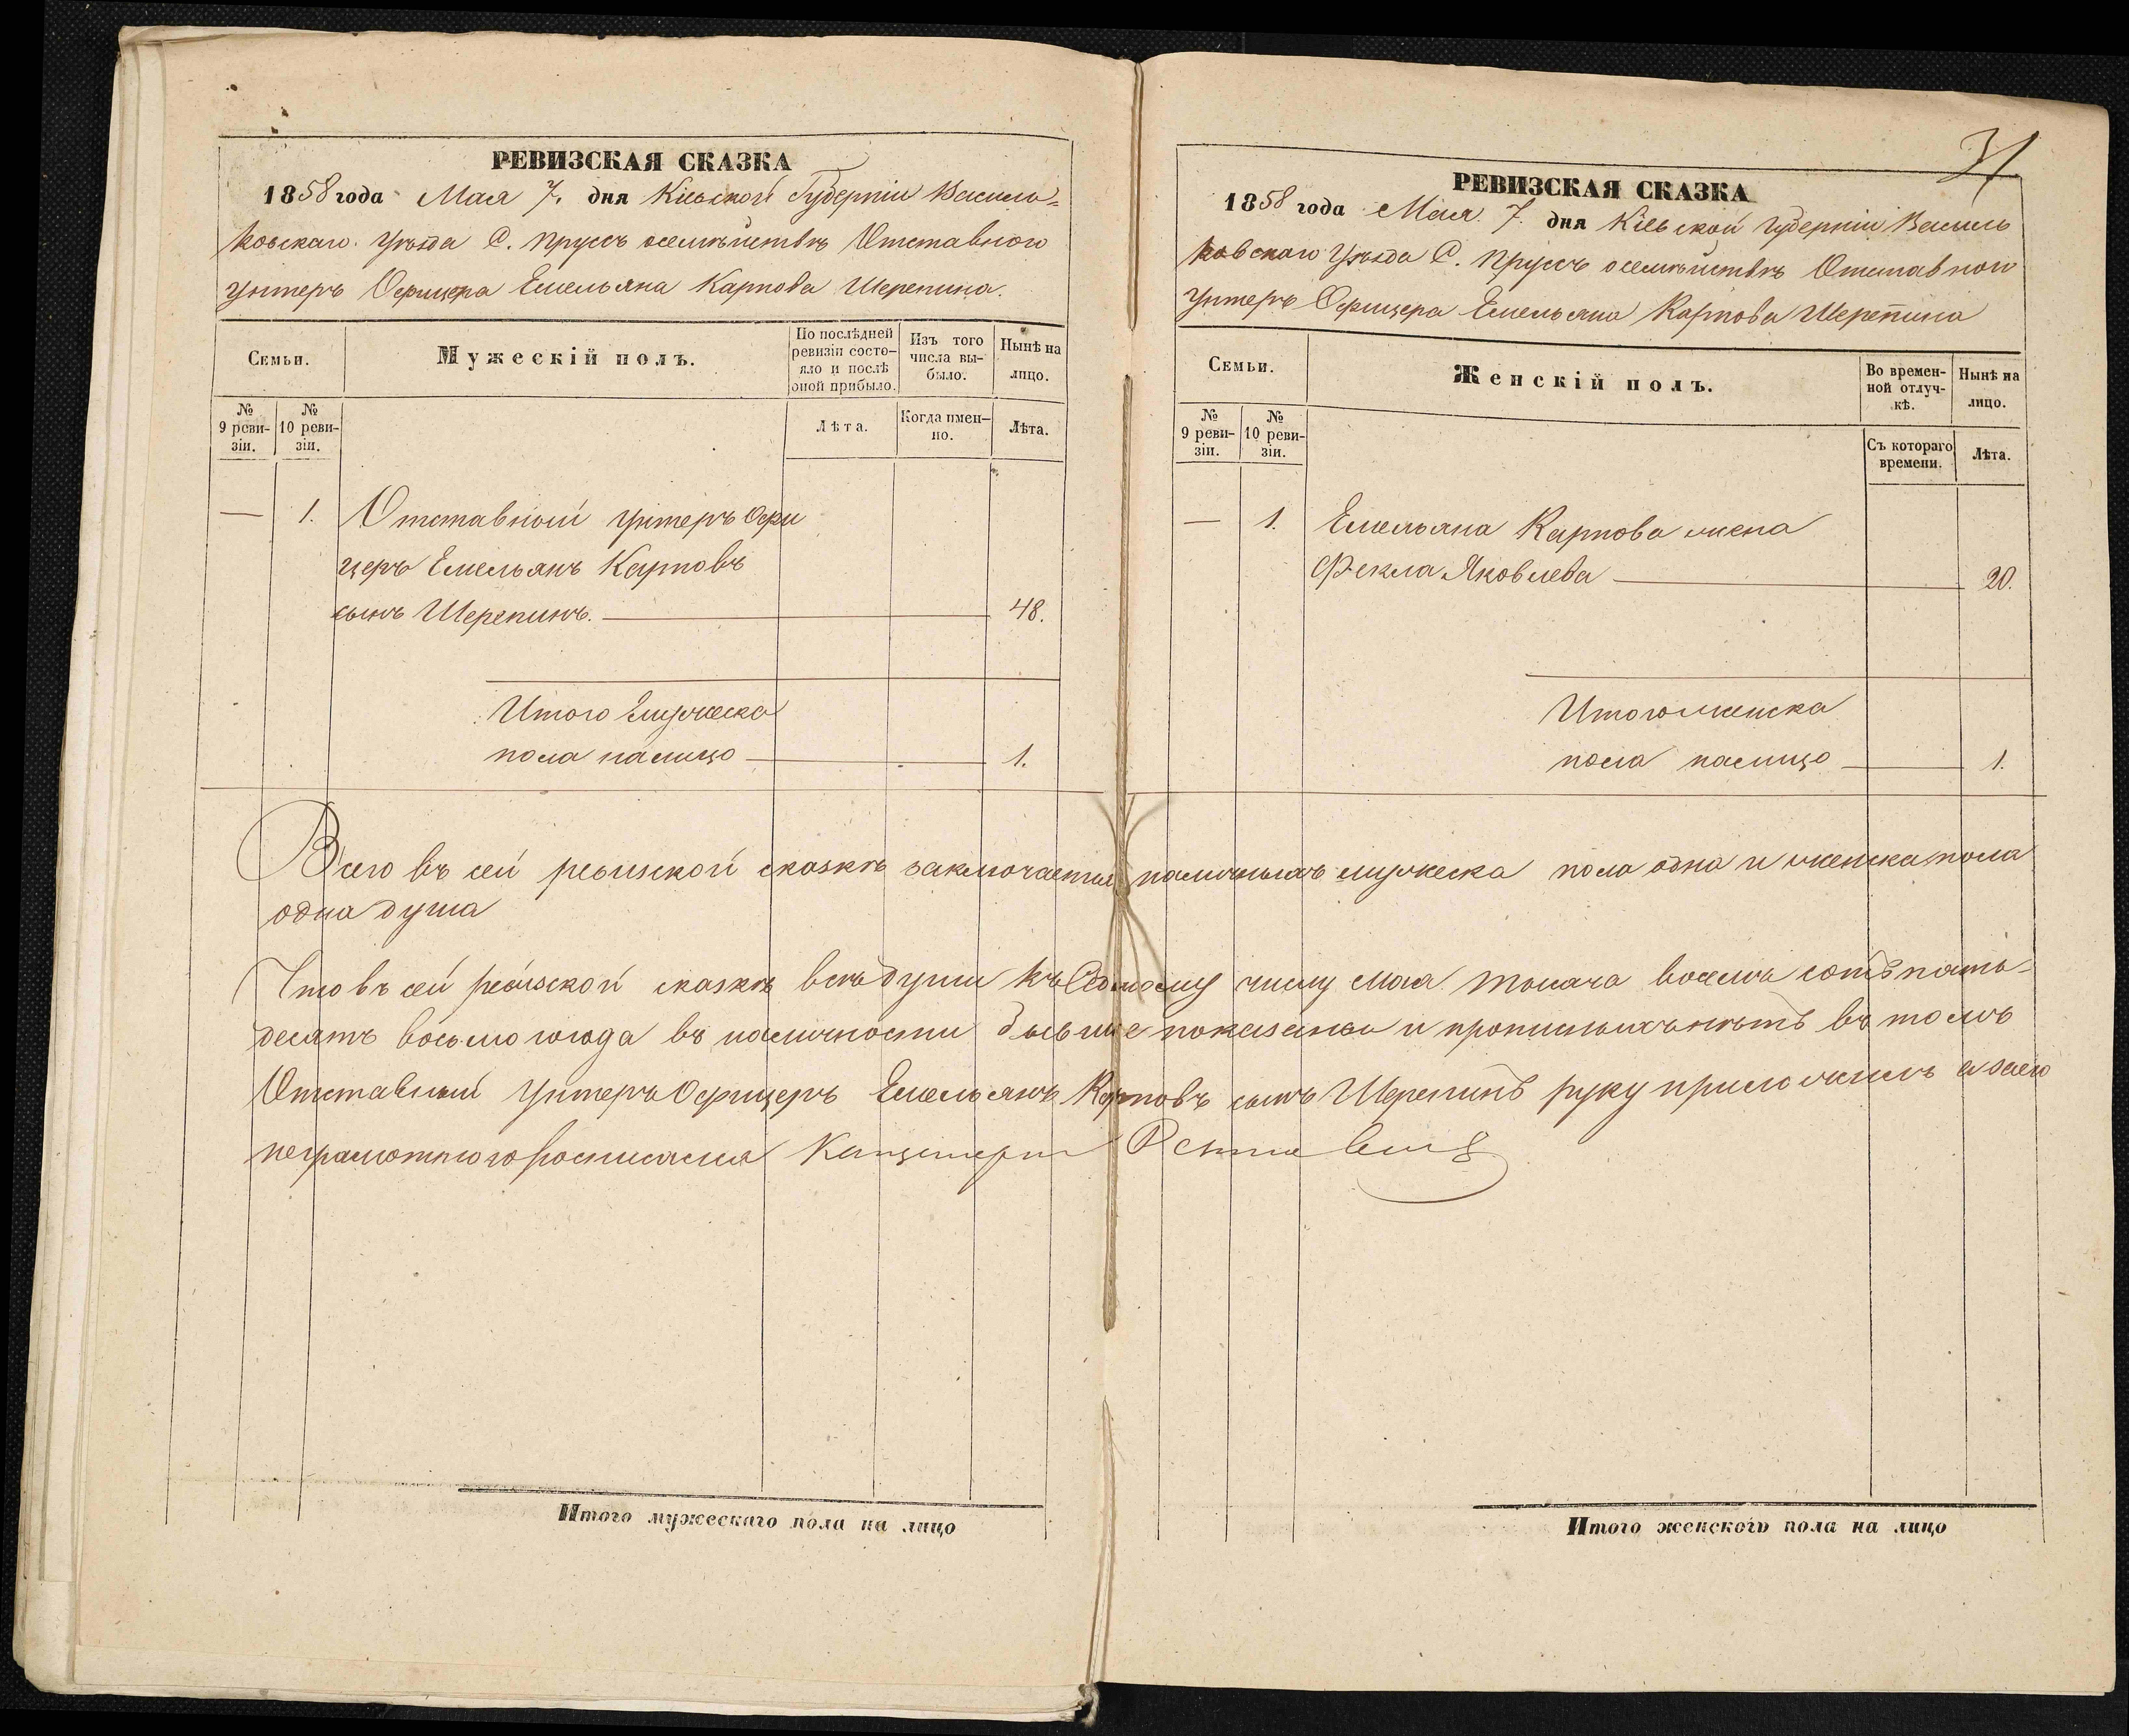 РЕВИЗСКАЯ СКАЗКА
1858 года Мая 7. дня Кіевской Губерніи Василь=
ковскаго Уѣзда С. Пруссъ осемѣйствѣ Отставного
Унтеръ Офицера Емельяна Карпова Шерепина.
Семьи.
Мужескій полъ.
По послѣдней
ревизіи состо-
яло и послѣ
оной прибыло.
Изъ того
числа вы-
было.
Нынѣ на
лицо.
№
9 реви-
зіи.
№
10 реви-
зіи.
Лѣта.
Когда имен-
но.
Лѣта.
— 1. Отставный унтеръ Офи
церъ Емельянъ Карповъ
сынъ Шерепинъ. 48.
Итого мужеска
пола налицо 1.
31
РЕВИЗСКАЯ СКАЗКА
1858 года Мая 7. дня Кіевской Губерніи Василь
ковскаго Уѣзда С. Пруссъ осемѣйствѣ Отставного
Унтеръ Офицера Емельяна Карпова Шерепина
Семьи.
Женскій полъ.
Во времен-
ной отлуч-
кѣ.
Нынѣ на
лицо.
№
9 реви-
зіи.
№
10 реви-
зіи.
Съ котораго
времени.
Лѣта.
— 1. Емельяна Карпова жена
Фекла Яковлева 20.
Итого женска
пола налицо 1.
Всего въ сей ревизской сказкѣ заключается наличныхъ мужеска пола одна и женска пола
одна душа
Что въ сей ревизской сказкѣ всѣ души къ Седьмому числу Мая тысяча восемь сотъ пять-
десятъ восьмого года въ наличности бывшіе показаны и прописныхъ нѣтъ въ томъ
Отставный Унтеръ Офицеръ Емельянъ Карповъ сынъ Шерепинъ руку приложилъ а заего
неграмотного росписался
Итого мужескаго пола на лицо
Итого женского пола на лицо